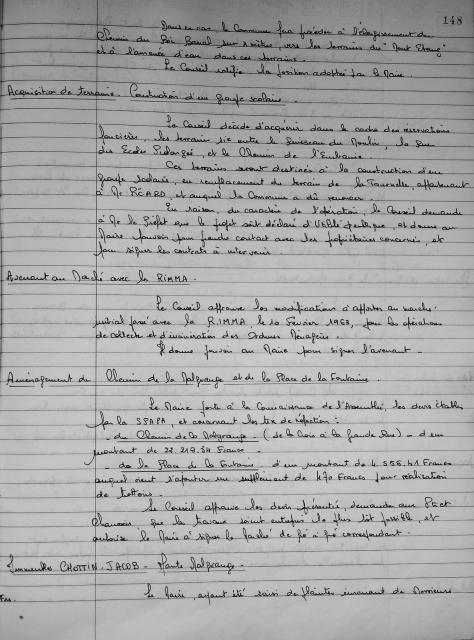 148
Dans ce cas la Commune fera procéder à l'élargissement du
Chemin du Bois Banal sur mètres vers les terrains du "Mont Etang"
et à l'amenée d'eau dans ces terrains.
Le Conseil ratifie la position adoptée par le Maire.
Acquisition de terrains. Construction d'un groupe scolaire.
Le Conseil décide d'acquérir dans le cadre des réservations
foncières, les terrains sis entre le Ruisseau du Moulin, la Rue
des Ecoles Prolongée, et le Chemin de l'
Ces terrains seront destinés à la construction d'un
groupe scolaire, en remplacement du terrain de la Tournelle appartenant
à Mr PICARD, et auquel la Commune a dû renoncer.
En raison du caractère de l'opération, le Conseil demande
à Mr le Préfet que le projet soit déclaré d'Utilité publique, et donne au
Maire pouvoir pour prendre contact avec les propriétaires concernés, et
pour signer les contrats à intervenir.
Avenant au Marché avec la RIMMA.
Le Conseil approuve les modifications à apporter au marché
initial passé avec la R.IMMA le 10 Février 1968, pour les opérations
de collecte et d'incinération des Ordures Ménagères.
Il donne pouvoir au Maire pour signer l'avenant.
Aménagement du Chemin de la Malgrange et de la Place de la Fontaine.
Le Maire porte à la Connaissance de l'Assemblée, les devis établis
par la SPAPA, et concernant les tx de réfection :
- du Chemin de la Malgrange - (de la Croix à la Grande Rue) - d'un
montant de 22.219.54 Francs
- de la Place de la Fontaine d'un montant de 4.556,41 Francs
auquel vient s'ajouter un supplément de 470 Francs pour réalisation
de trottoirs.
Le Conseil approuve les devis présentés, demande aux Pts et
Chaussées que les travaux soient entrepris le plus tôt possible, et
autorise le Maire à signer le Marché de gré à gré correspondant.
Immeuble CHOTTIN-JACOB - Haute Malgrange -
Le Maire, ayant été saisi de plaintes émanant de Messieurs